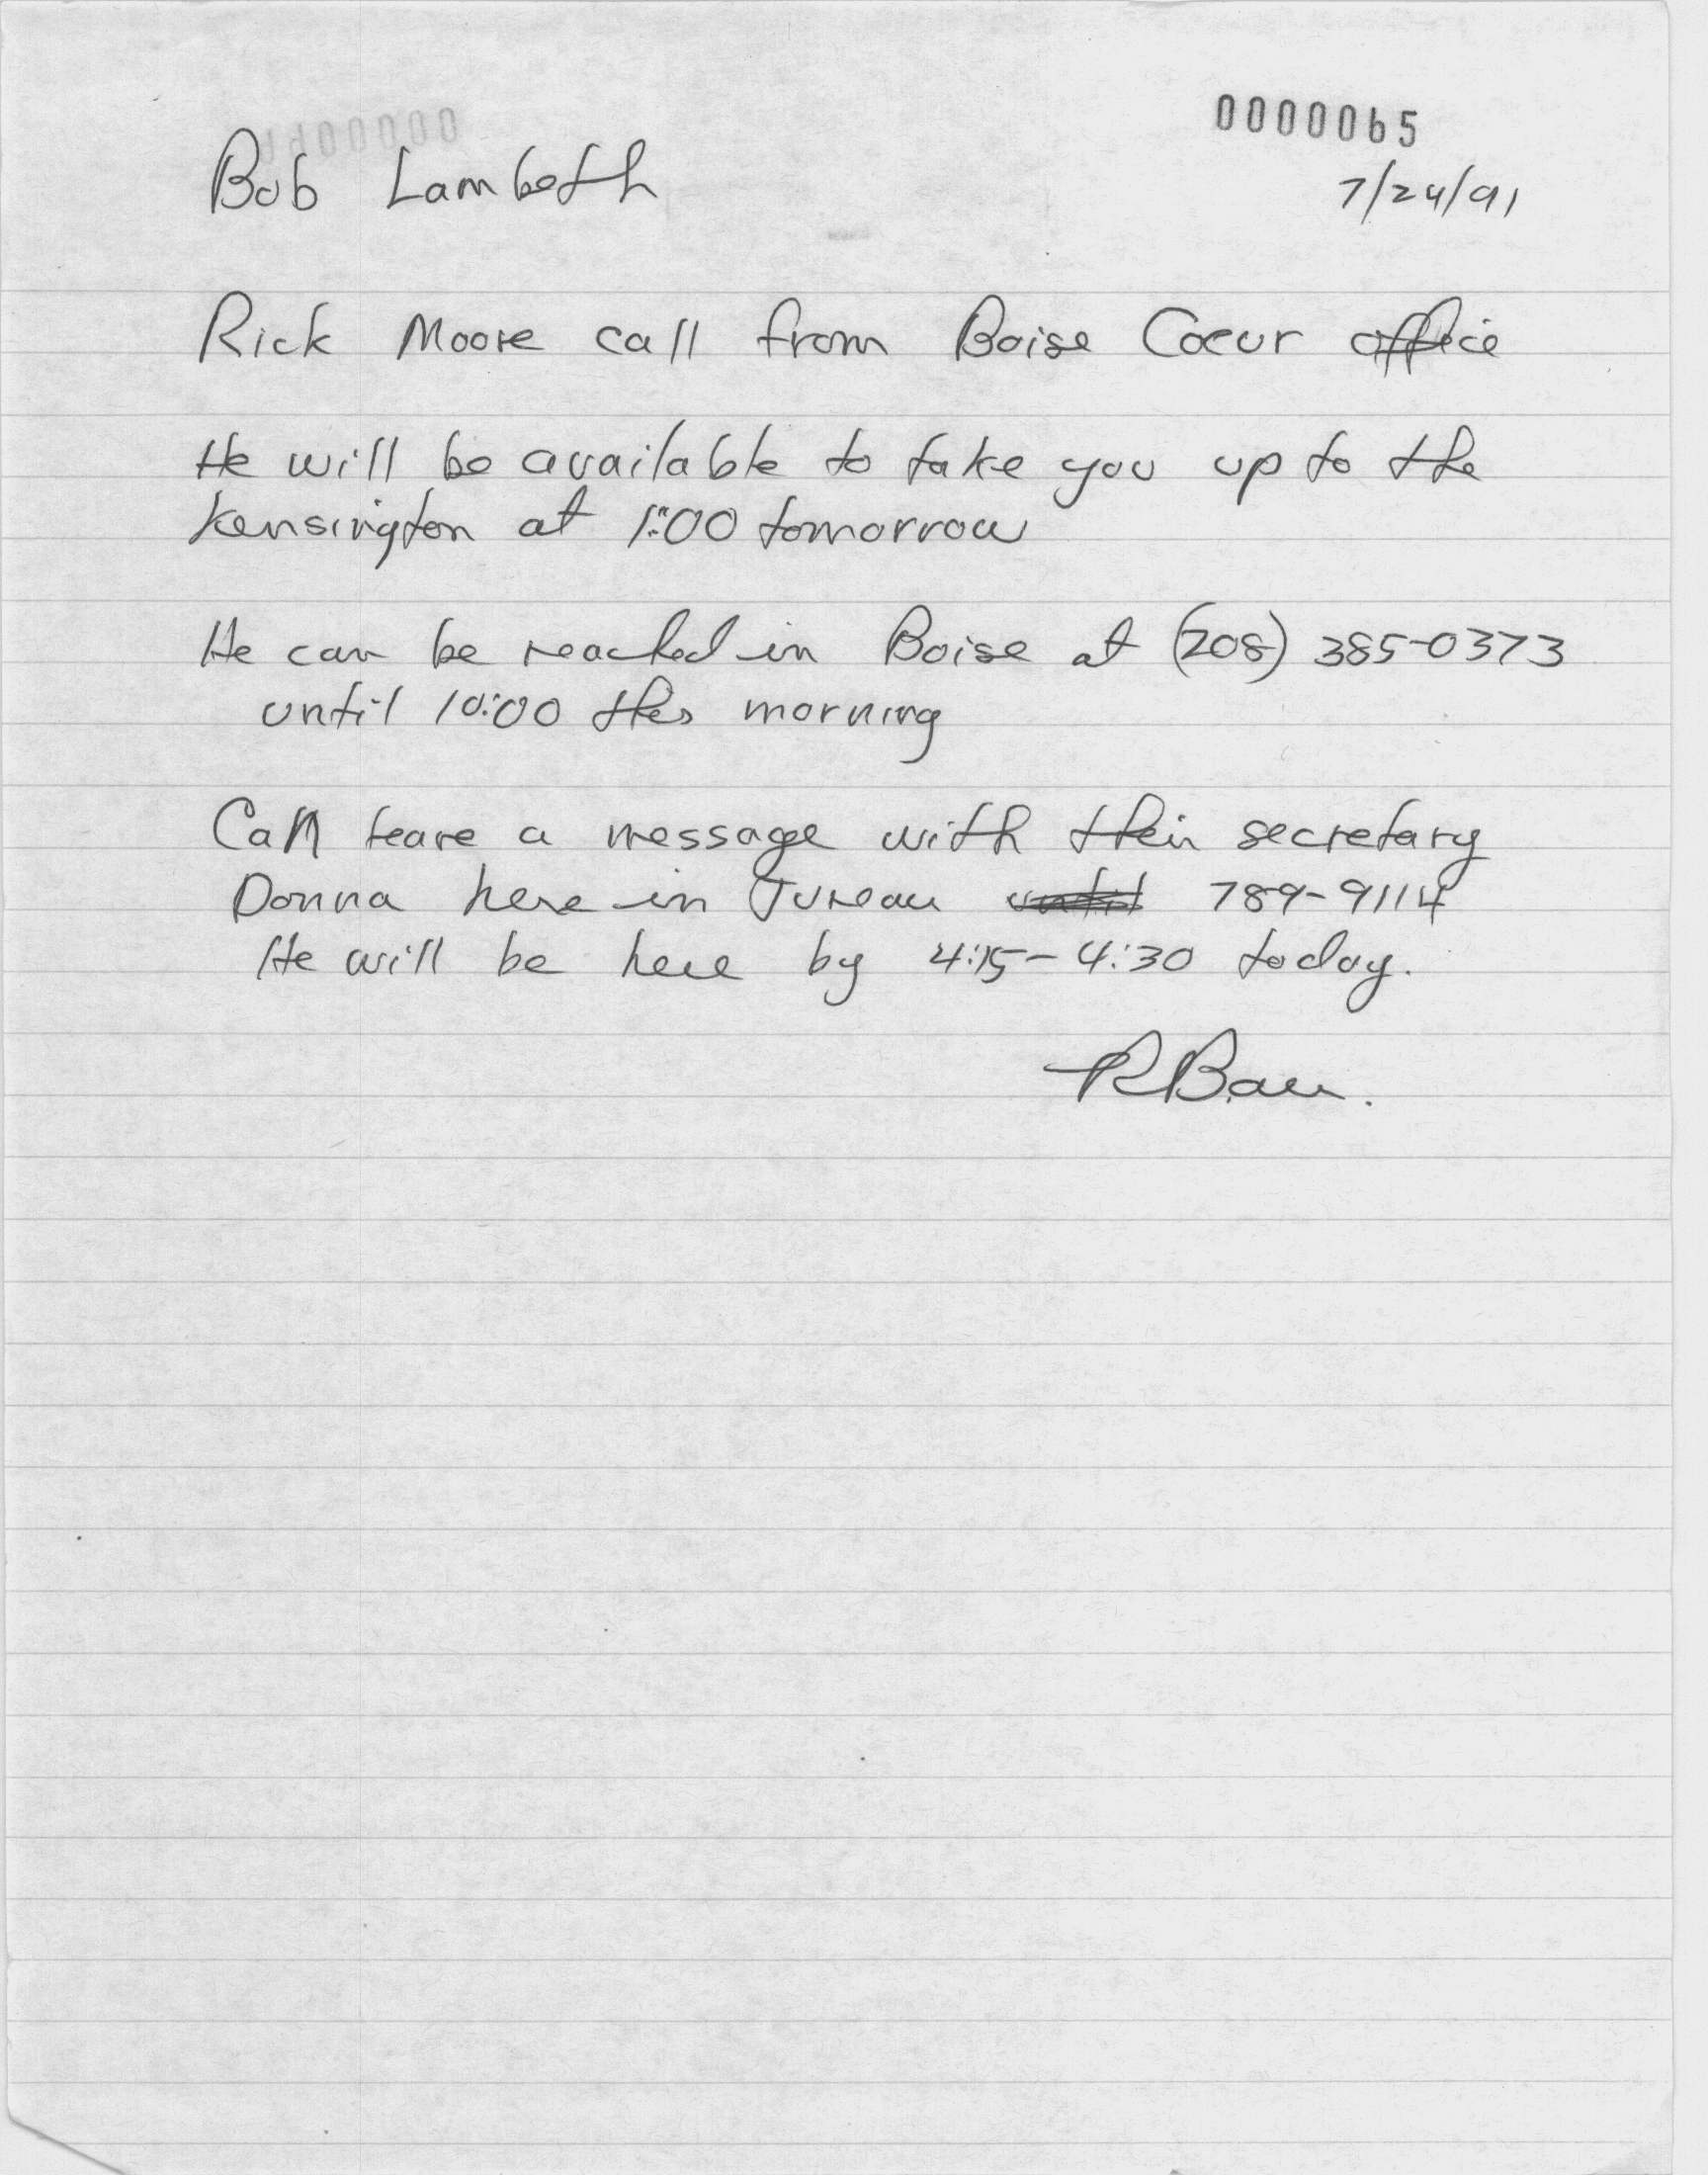 0000065
Bob Lambeth
7/24/91
Rick Moore call from Boise Coeur office
He will be available to take you up to the
Kensington at 1:00 tomorrow
He can be reached in Boise at (208) 385-0373
until 10:00 this morning
Can leave a message with their secretary
Donna here in Juneau until 789-9114
He will be here by 4:15-4:30 today.
RBau.